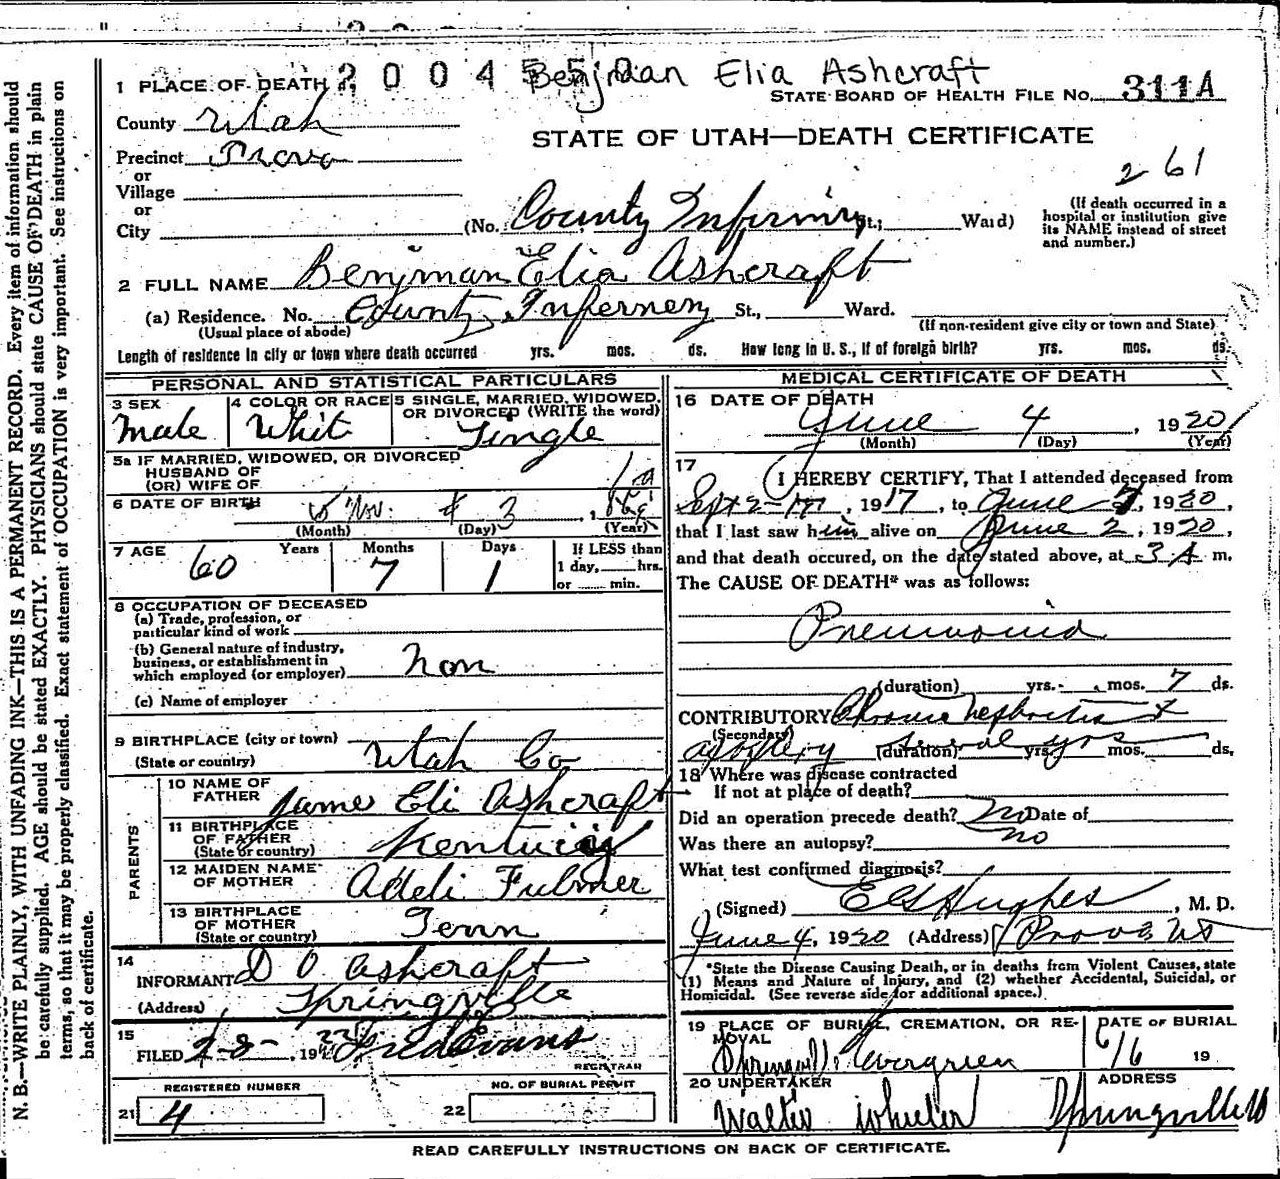 2004550 Benjman Elia Ashcraft
1 PLACE OF DEARTH
STATE BOARD OF HEALTH FILE No. 311A
County Utah
STATE OF UTAH—DEATH CERTIFICATE
Precinct Provo
261
or
Village
or
City
(No. County Infirmiry St.; Ward)
(If death occurred in a hospital or institution give its NAME instead of street and number.)
2 FULL NAME Benjman Elia Ashcraft
(a) Residence. No. County Infernery St., Ward.
(Usual place of abode)
(If non-resident give city or town and State)
Length of residence in city or town where death occurred yrs. mos. ds. How long in U. S., if of foreign birth? yrs. mos. ds.
PERSONAL AND STATISTICAL PARTICULARS
3 SEX Male
4 COLOR OR RACE Whit
5 SINGLE, MARRIED, WIDOWED, OR DIVORCED (WRITE the word) Single
5a IF MARRIED, WIDOWED, OR DIVORCED
HUSBAND OF
(OR) WIFE OF
6 DATE OF BIRTH Nov. 3
(Month) (Day) (Year)
7 AGE 60 Years 7 Months 1 Days
If LESS than
1 day, hrs.
or min.
8 OCCUPATION OF DECEASED
(a) Trade, profession, or
particular kind of work
(b) General nature of industry,
business, or establishment in
which employed (or employer) non
(c) Name of employer
9 BIRTHPLACE (city or town)
(State or country) Utah Co
PARENTS
10 NAME OF FATHER James Eli Ashcraft
11 BIRTHPLACE OF FATHER (State or country) Kentucky
12 MAIDEN NAME OF MOTHER Adeli Fulmer
13 BIRTHPLACE OF MOTHER (State or country) Tenn
14
INFORMANT D O Ashcraft
(Address) Springville
15
FILED 19 Fred Evans
REGISTRAR
REGISTERED NUMBER
NO. OF BURIAL PERMIT
21 4
22
MEDICAL CERTIFICATE OF DEATH
16 DATE OF DEATH
June 4, 1920
(Month) (Day) (Year)
17
I HEREBY CERTIFY, That I attended deceased from
Sept 1917, to June 1920
that I last saw him alive on June 2, 1920,
and that death occured, on the date stated above, at 3 A m.
The CAUSE OF DEATH* was as follows:
Pneumonia
(duration) yrs. mos. 7 ds.
CONTRIBUTORY Chronic Nephritis &
(Secondary)
apoplexy (duration) several yrs mos. ds.
18 Where was disease contracted
If not at place of death?
Did an operation precede death? no Date of
Was there an autopsy? no
What test confirmed diagnosis?
(Signed) Hughes, M. D.
June 4, 1920 (Address) Provo Ut
*State the Disease Causing Death, or in deaths from Violent Causes, state
(1) Means and Nature of Injury, and (2) whether Accidental, Suicidal, or
Homicidal. (See reverse side for additional space.)
19 PLACE OF BURIAL, CREMATION, OR RE-
MOVAL
Springville Evergreen
DATE OF BURIAL
6/6 19
20 UNDERTAKER
Walter Wheeler
ADDRESS
Springville
READ CAREFULLY INSTRUCTIONS ON BACK OF CERTIFICATE.
N. B.—WRITE PLAINLY, WITH UNFADING INK—THIS IS A PERMANENT RECORD. Every item of information should
be carefully supplied. AGE should be stated EXACTLY. PHYSICIANS should state CAUSE OF DEATH in plain
terms, so that it may be properly classified. Exact statement of OCCUPATION is very important. See instructions on
back of certificate.